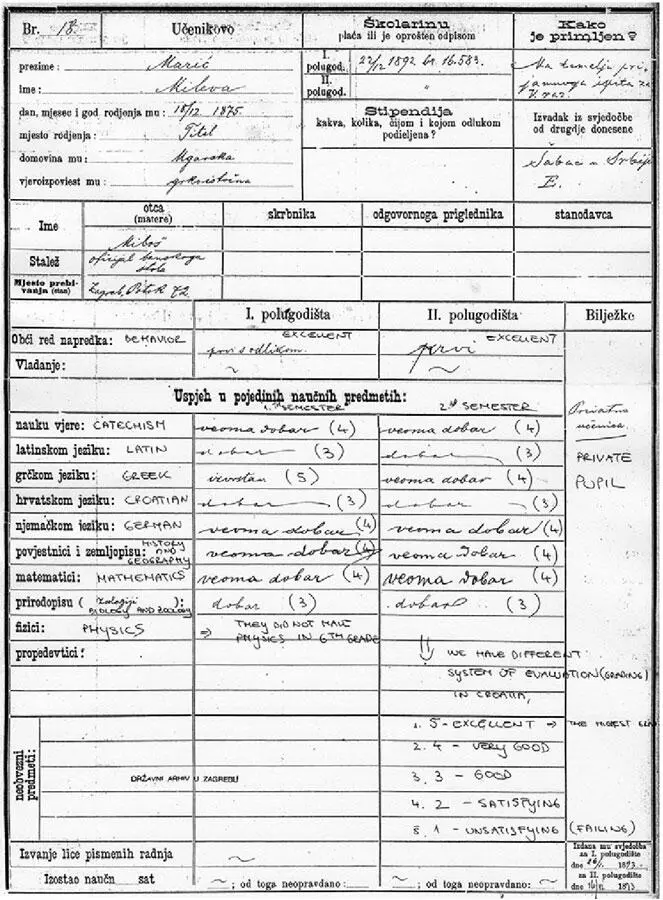 Br. 18.
Učenikovo
Školarinu
plaća ili je oprošten odpisom
Kako
je primljen?
prezime: Marić
ime: Mileva
dan, mjesec i god. rodjenja mu: 18/12 1875.
mjesto rodjenja: Titel
domovina mu: Ugarska
vjeroizpoviest mu: grkoistočna
I.
polugod.
22/12 1892 br. 16.583.
II.
polugod.
"
Stipendija
kakva, kolika, čijom i kojom odlukom
podieljena?
Na temelju pri-
jamnoga ispita za
V. raz.
Izvadak iz svjedočbe
od drugdje donesene
Šabac u Srbiji
Ime
otca
(matere)
skrbnika
odgovornoga priglednika
stanodavca
Miloš
Stalež
oficijal banskoga
stola
Mjesto prebi-
vanja (stan)
Zagreb, Potok 72.
I. polugodišta
II. polugodišta
Bilježke
Obći red napredka: BEHAVIOR
EXCELLENT
prvi s odlikom.
EXCELLENT
prvi
Vladanje: ~ ~
Uspjeh u pojedinih naučnih predmetih:
1. ST SEMESTER
2. nd SEMESTER
Privatna
učenica.
nauku vjere: CATECHISM veoma dobar (4) veoma dobar (4)
latinskom jeziku: LATIN dobar (3) dobar (3) PRIVATE
grčkom jeziku: GREEK izvrstan (5) veoma dobar (4) PUPIL
hrvatskom jeziku: CROATIAN dobar (3) dobar (3)
njemačkom jeziku: GERMAN veoma dobar (4) veoma dobar (4)
povjestnici i zemljopisu: HISTORY AND GEOGRAPHY veoma dobar (4) veoma dobar (4)
matematici: MATHEMATICS veoma dobar (4) veoma dobar (4)
prirodopisu (Zoologiji): BIOLOGY AND ZOOLOGY dobar (3) dobar (3)
fizici: PHYSICS ⇒ THEY DID NOT HAVE
PHYSICS IN 6TH GRADE
propedevtici:
WE HAVE DIFFERENT
SYSTEM OF EVALUATION (GRADING)
IN CROATIA,
neobvezni
predmeti:
1. 5 - EXCELLENT ⇒ THE HIGHEST
2. 4 - VERY GOOD
DRŽAVNI ARHIV U ZAGREBU
3. 3 - GOOD
4. 2 - SATISFYING
5. 1 - UNSATISFYING (FAILING)
Izvanje lice pismenih radnja ~
Izostao naučn sat ~; od toga neopravdano: ~; od toga neopravdano: ~
Izdana mu svjedočba
za I. polugodište
dne 1893.
za II. polugodište
dne 1893